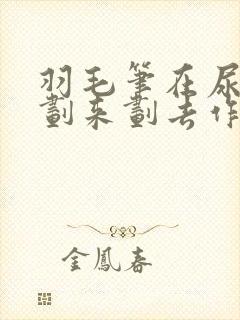 羽毛筆在尿
劃來劃去作
金鳳春